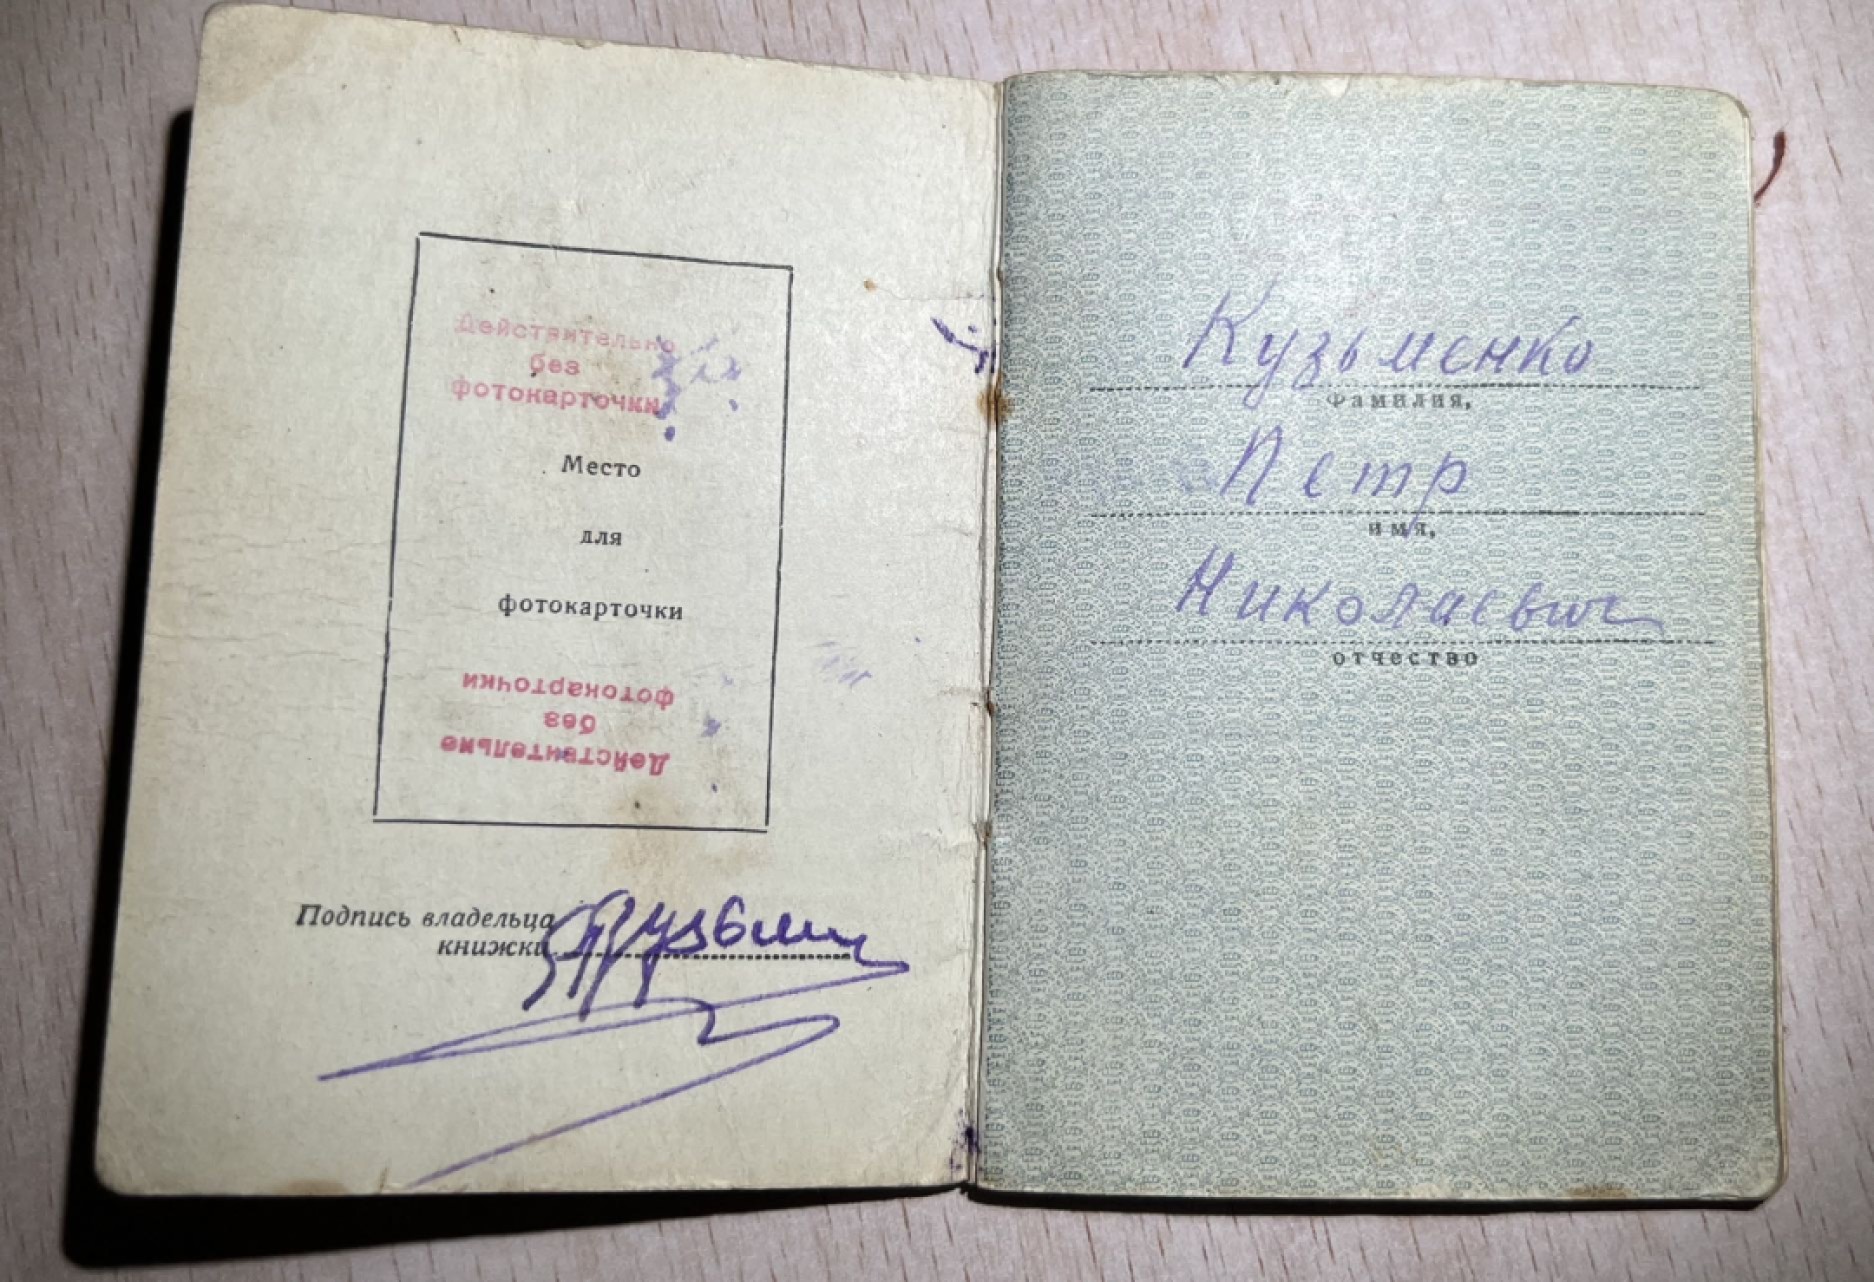 Действительно
без
фотокарточки
Место
для
фотокарточки
Действительно
без
фотокарточки
Подпись владельца
книжки
Кузьменко
Фамилия,
Петр
имя,
Николаевич
отчество